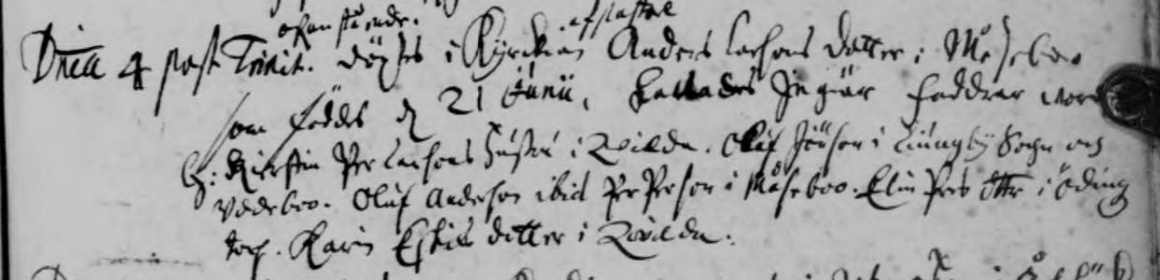 ofanstående. af pastore
Dnica 4 post Trinit. döptes i Kyrckian Anders Larsons dotter i Måseboo
som föddes d 21 Junii, kallades Ingiär faddrar wore
h: Kirstin Per Larsons hustru i Qvilda. Oluf Jönson i Liungby Sogn och
Vedeboo. Oluf Anderson ibid Per Person i Måseboo. Elin Pers dttr i Öding
torp. Karin Eskils dotter i Qvilda.